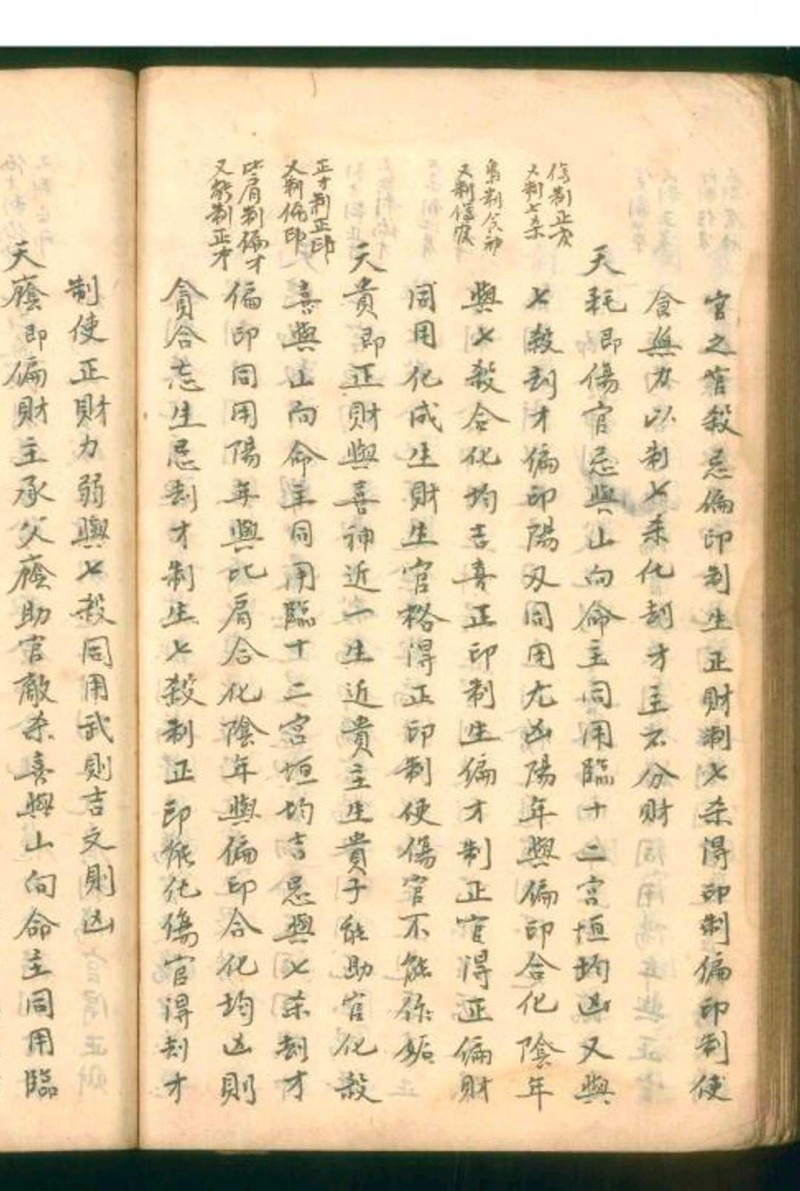 官之官殺忌偏印制生正財制七杀得印制偏印制使
食無力以制七杀化刼才主不分財
天耗即傷官忌與山向命主同用臨十二宮垣均凶又與
傷制正官
又制七杀
七殺刼才偏印陽刃同用尤凶陽年與偏印合化陰年
梟制食神
又制傷
與七殺合化均吉喜正印制生偏才制正官得正偏財
同用化成生財生官格得正印制使傷官不能作
天貴即正財與喜神近一生近貴主生貴子能助官化殺
正才制正印
又制偏印
喜與山向命主同用臨十二宮垣均吉忌與七杀刼才
比肩制偏才
又能制正才
偏印同用陽年與比肩合化陰年與偏印合化均凶則
貪合忘生忌刼才制生七殺制正印能化傷官得刼才
制使正財力弱與七殺同用武則吉文則凶
天廕即偏財主承父廕助官敵杀喜與山向命主同用臨